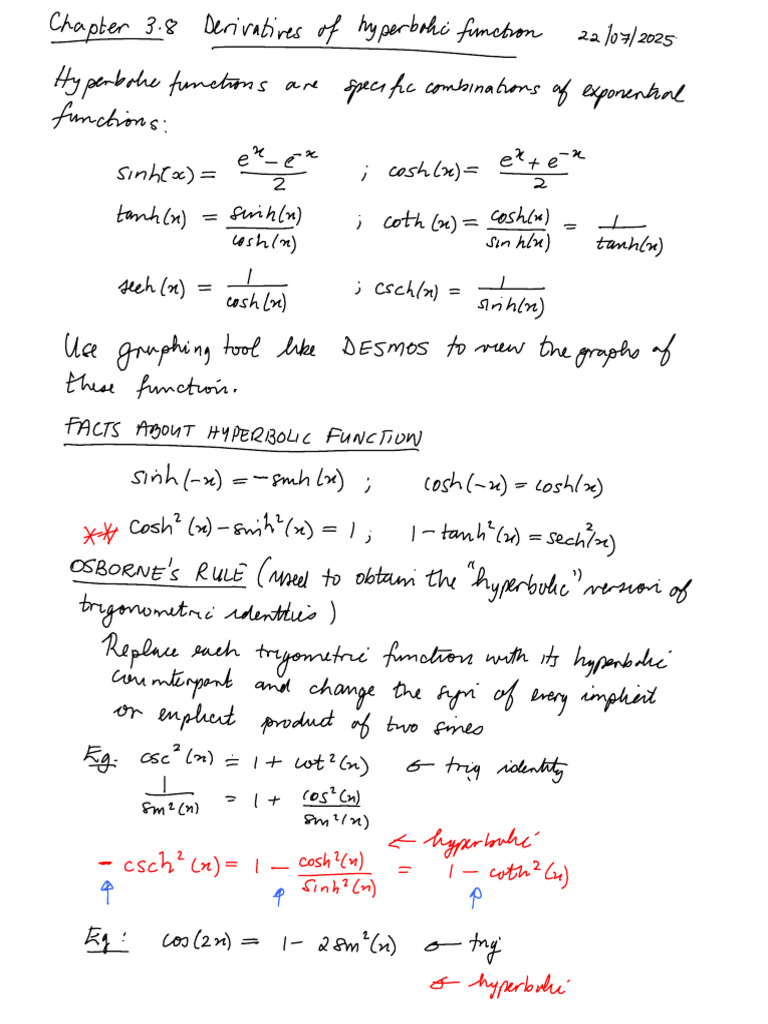 Chapter 3.8 Derivatives of hyperbolic function 22/07/2025
Hyperbolic functions are specific combinations of exponential
functions:
sinh(x) = (e^x - e^-x)/2 ; cosh(x) = (e^x + e^-x)/2
tanh(x) = sinh(x)/cosh(x) ; coth(x) = cosh(x)/sinh(x) = 1/tanh(x)
sech(x) = 1/cosh(x) ; csch(x) = 1/sinh(x)
Use graphing tool like DESMOS to view the graphs of
these function.
FACTS ABOUT HYPERBOLIC FUNCTION
sinh(-x) = -sinh(x) ; cosh(-x) = cosh(x)
** cosh²(x) - sinh²(x) = 1 ; 1 - tanh²(x) = sech²(x)
OSBORNE'S RULE (used to obtain the "hyperbolic" version of
trigonometric identities)
Replace each trigometric function with its hyperbolic
counterpart and change the sign of every implicit
or explicit product of two sines
Eg. csc²(x) = 1 + cot²(x) ← trig identity
1/sin²(x) = 1 + cos²(x)/sin²(x)
← hyperbolic
- csch²(x) = 1 - cosh²(x)/sinh²(x) = 1 - coth²(x)
↑ ↑ ↑
Eg: cos(2x) = 1 - 2sin²(x) ← trig
← hyperbolic